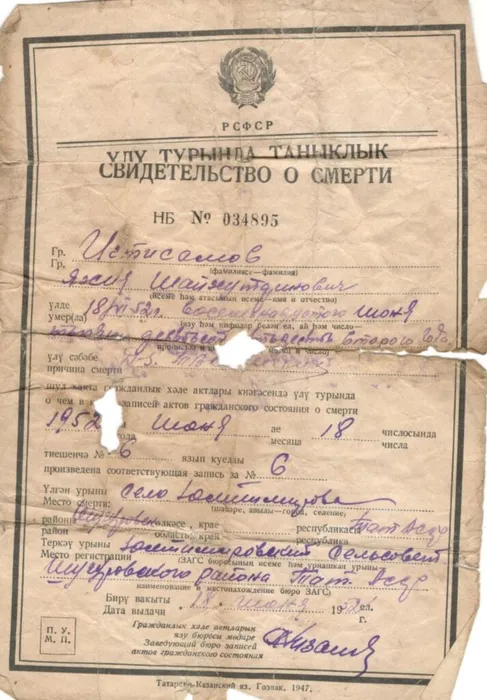 РСФСР
ҮЛҮ ТУРЫНДА ТАНЫКЛЫК
СВИДЕТЕЛЬСТВО О СМЕРТИ
НБ № 034895
Гр. Ихтисамов
Гр.
(фамилиясе—фамилия)
Яхия Шайхутдинович
(исеме һәм атасының исеме—имя и отчество)
үлде
умер(ла) 18/VI-52г. восемнадцатого июня
(язу һәм цифрлар белән ел, ай һәм число
тысяча девятьсот второго года
үлү сәбәбе
причина смерти
шул хакта гражданлык хәле актлары кнәгәсендә үлү турында
о чем в записей актов гражданского состояния о смерти
1952 июня ае 18 числосында
года месяца числа
тиешенчә № 6 язып куелды
произведена соответствующая запись за № 6
Үлгән урыны село
Место смерти: (шәһәре, авылы—город, селение,
районы өлкәсе, крае республикасы Тат АССР
район область, край республика
Теркәү урыны сельсовет
Место регистрации (ЗАГС бюросының исеме һәм урнашкан урыны
района Тат. АССР
наименование и местонахождение бюро ЗАГС)
Бирү вакыты 18 июня 1952 ел.
Дата выдачи г.
Гражданлык хәле актларын
язу бюросы мөдире
Заведующий бюро записей
актов гражданского состояния
П. У.
М. П.
Татарск-Казанский яз. Гознак, 1947.